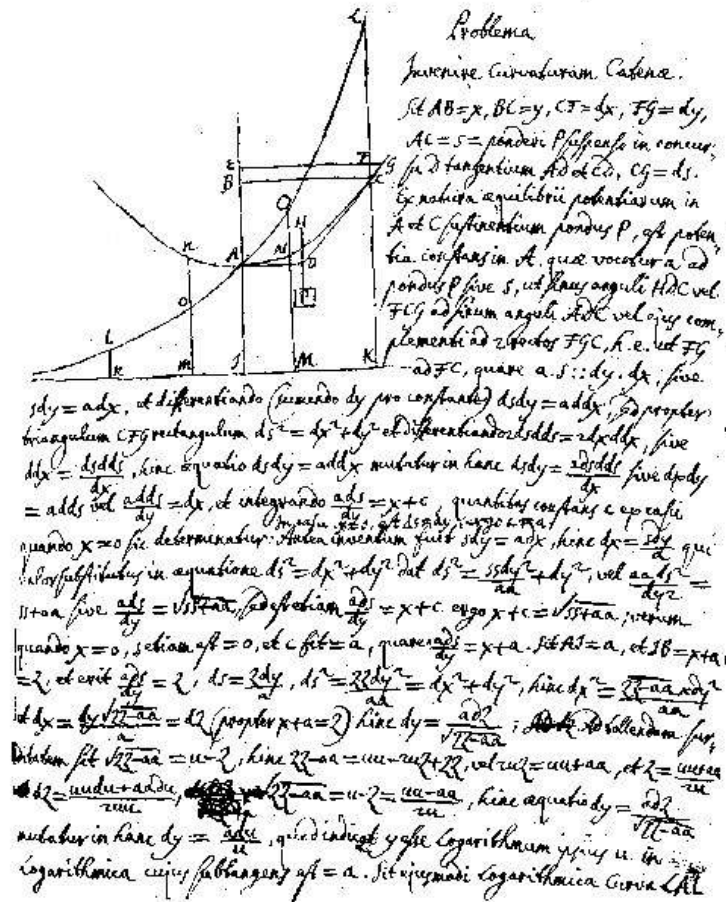 Problema
Invenire Curvaturam Catenæ.
Sit AB=x, BC=y, CF=dx, FG=dy,
AC=s=ponderi P suspenso in concur-
su D tangentium AD et CD, CG=ds.
Ex natura æquilibrii potentiarum in
A et C sustinentium pondus P, est poten-
tia constans in A quæ vocetur a ad
pondus P sive s, ut sinus anguli HDC vel
FCG ad sinum anguli ADC vel ejus com-
plementi ad 2 rectos FGC, h.e. ut FG
ad FC, quare a.s::dy.dx, sive
sdy=adx, et differentiando (sumendo dy pro constante) dsdy=addx, sed propter
triangulum CFG rectangulum ds²=dx²+dy² et differentiando 2dsdds=2dxddx, sive
ddx=dsdds/dx, hinc æquatio dsdy=addx mutatur in hanc dsdy=adsdds/dx sive dxdy
=adds vel adds/dy=dx, et integrando ads/dy=x+c quantitas constans c ex casu
quando x=0 sic determinatur: Antea inventum fuit sdy=adx, hinc dx=sdy/a qui
valor substitutus in æquatione ds²=dx²+dy² dat ds²=ssdy²/aa+dy², vel aads²/dy²=
ss+aa sive ads/dy=√ss+aa, sed etiam ads/dy=x+c ergo x+c=√ss+aa; verum
quando x=0, s etiam est=0, et c fit=a, quare ads/dy=x+a. Sit AI=a, et IB=x+a
=z, et erit ads/dy=z, ds=zdy/a, ds²=zzdy²/aa=dx²+dy², hinc dx²=zz-aa×dy²/aa
et dx=dy√zz-aa/a=dz (propter x+a=z) hinc dy=adz/√zz-aa; Ad tollendam sur-
ditatem sit √zz-aa=u-z, hinc zz-aa=uu-2uz+zz, vel 2uz=uu+aa, et z=uu+aa/2u
et dz=uudu-aadu/2uu, √zz-aa=u-z=uu-aa/2u, hinc æquatio dy=adz/√zz-aa
mutatur in hanc dy=adu/u, quod indicat y esse Logarithmum ipsius u in
Logarithmica cujus subtangens est=a. Sit ejusmodi Logarithmica Curva LAL
L
E
F
B
G
C
Q
H
n
A
N
D
P
o
l
k
m
I
M
K